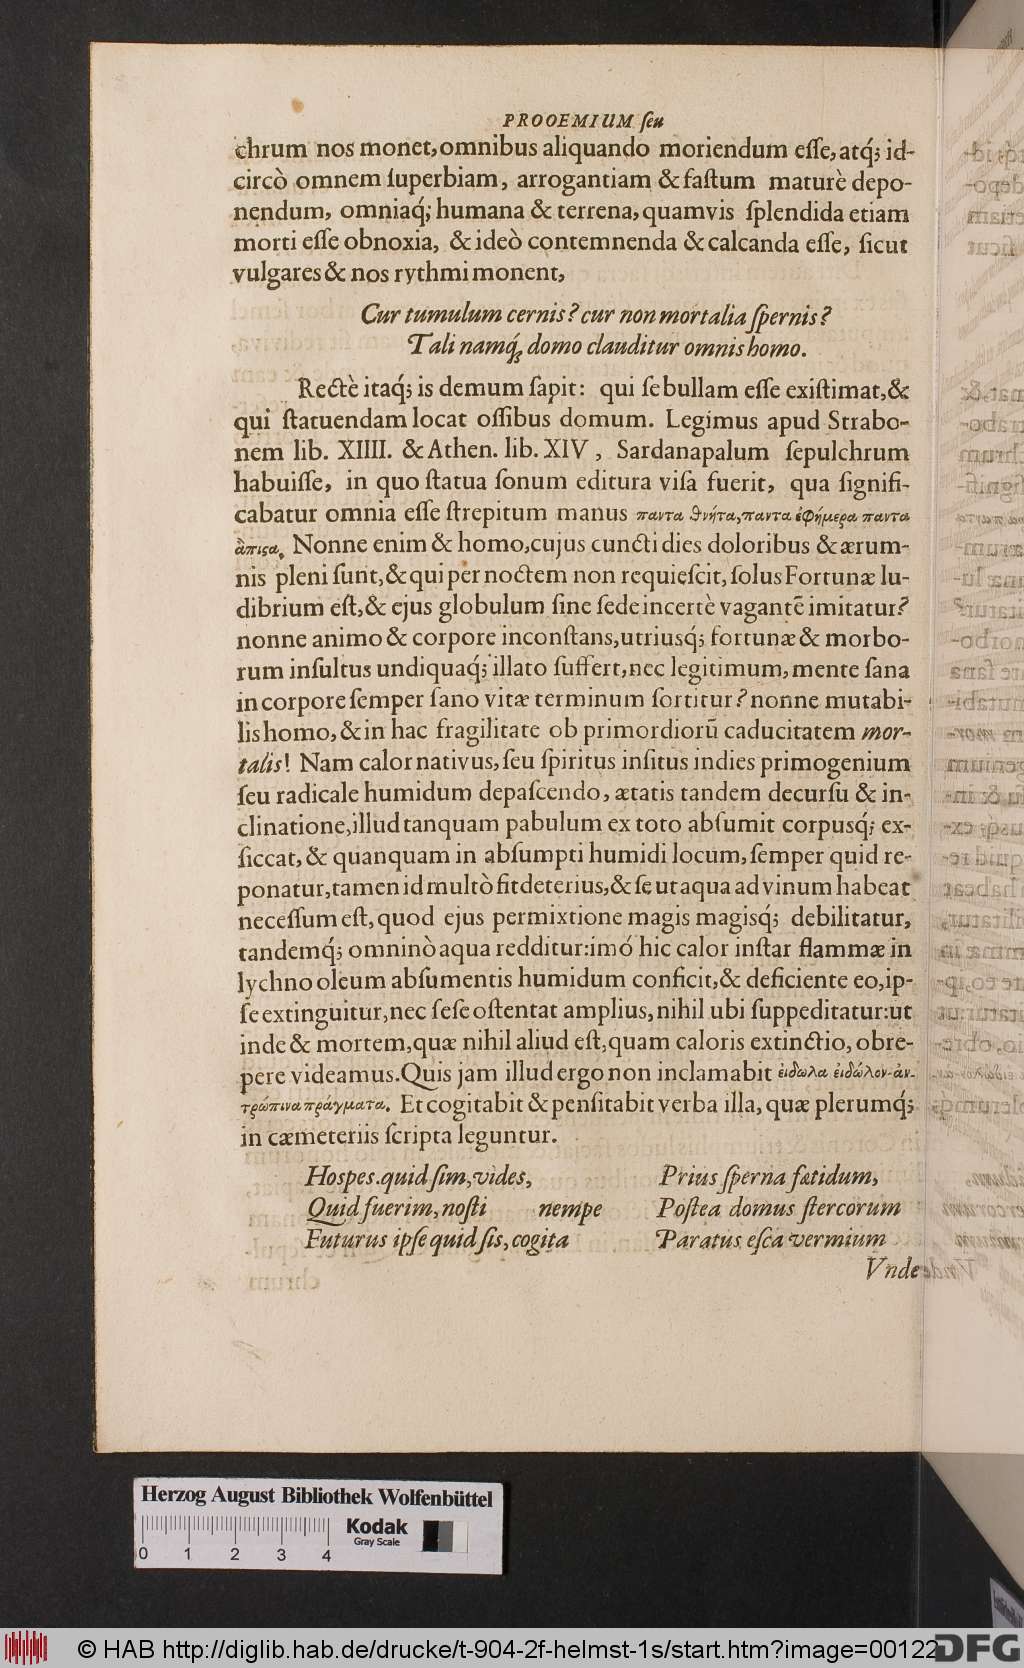 PROOEMIUM ſeu
chrum nos monet, omnibus aliquando moriendum eſſe, atq́; id-
circò omnem ſuperbiam, arrogantiam & faſtum maturè depo-
nendum, omniaq́; humana & terrena, quamvis ſplendida etiam
morti eſſe obnoxia, & ideò contemnenda & calcanda eſſe, ſicut
vulgares & nos rythmi monent,
Cur tumulum cernis? cur non mortalia ſpernis?
Tali namq́; domo clauditur omnis homo.
Rectè itaq́; is demum ſapit: qui ſe bullam eſſe exiſtimat, &
qui ſtatuendam locat oſſibus domum. Legimus apud Strabo-
nem lib. XIIII. & Athen. lib. XIV, Sardanapalum ſepulchrum
habuiſſe, in quo ſtatua ſonum editura viſa fuerit, qua ſignifi-
cabatur omnia eſſe ſtrepitum manus παντα θνήτα, παντα ἐφήμερα παντα
ἄπιϛα. Nonne enim & homo, cujus cuncti dies doloribus & ærum-
nis pleni ſunt, & qui per noctem non requieſcit, ſolus Fortunæ lu-
dibrium eſt, & ejus globulum ſine ſede incertè vagantē imitatur?
nonne animo & corpore inconſtans, utriusq́; fortunæ & morbo-
rum inſultus undiquaq́; illato ſuffert, nec legitimum, mente ſana
in corpore ſemper ſano vitæ terminum ſortitur? nonne mutabi-
lis homo, & in hac fragilitate ob primordiorū caducitatem mor-
talis! Nam calor nativus, ſeu ſpiritus inſitus indies primogenium
ſeu radicale humidum depaſcendo, ætatis tandem decurſu & in-
clinatione, illud tanquam pabulum ex toto abſumit corpusq́; ex-
ſiccat, & quanquam in abſumpti humidi locum, ſemper quid re-
ponatur, tamen id multò fit deterius, & ſe ut aqua ad vinum habeat
neceſſum eſt, quod ejus permixtione magis magisq́; debilitatur,
tandemq́; omninò aqua redditur: imó hic calor inſtar flammæ in
lychno oleum abſumentis humidum conficit, & deficiente eo, ip-
ſe extinguitur, nec ſeſe oſtentat amplius, nihil ubi ſuppeditatur: ut
inde & mortem, quæ nihil aliud eſt, quam caloris extinctio, obre-
pere videamus. Quis jam illud ergo non inclamabit ἐιδωλα ἐιδώλον-ἀν-
τρώπινα πράγματα. Et cogitabit & penſitabit verba illa, quæ plerumq́;
in cæmeteriis ſcripta leguntur.
Hospes. quid ſim, vides, Prius ſperna fœtidum,
Quid fuerim, noſti nempe Poſtea domus ſtercorum
Futurus ipſe quid ſis, cogita Paratus eſca vermium
Vnde
Herzog August Bibliothek Wolfenbüttel
Kodak
Gray Scale
0 1 2 3 4
© HAB http://diglib.hab.de/drucke/t-904-2f-helmst-1s/start.htm?image=00122
DFG